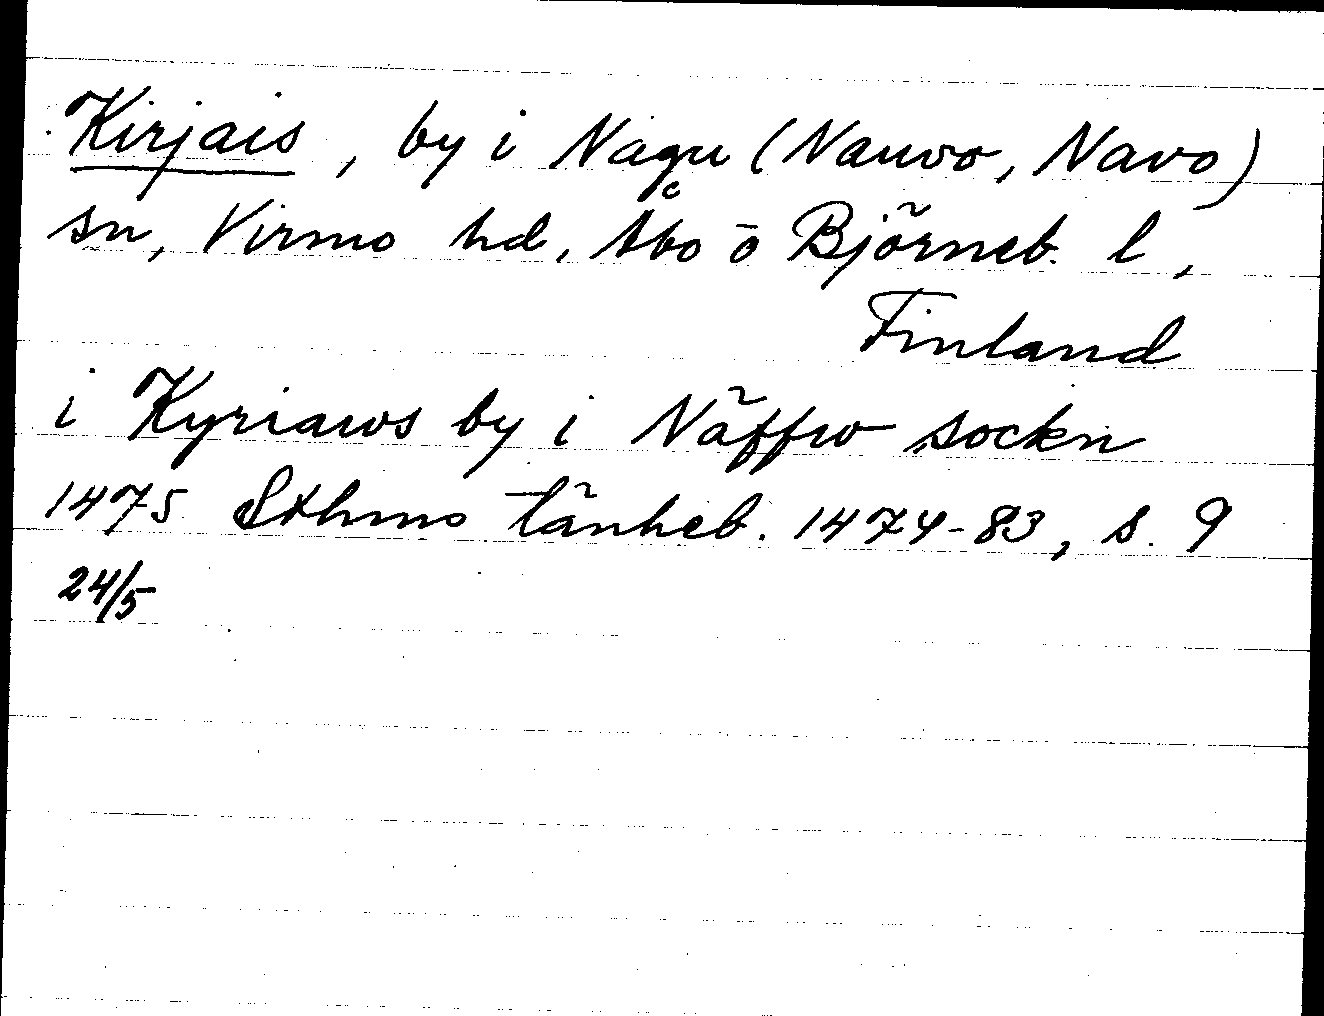 Kirjais, by i Nagu (Nauvo, Navo)
sn, Virmo hd, Åbo o Björneb. l,
Finland
i Kyriaws by i Näffwo sockn
1475 Sthms tänkeb. 1474-83, s. 9
24/5